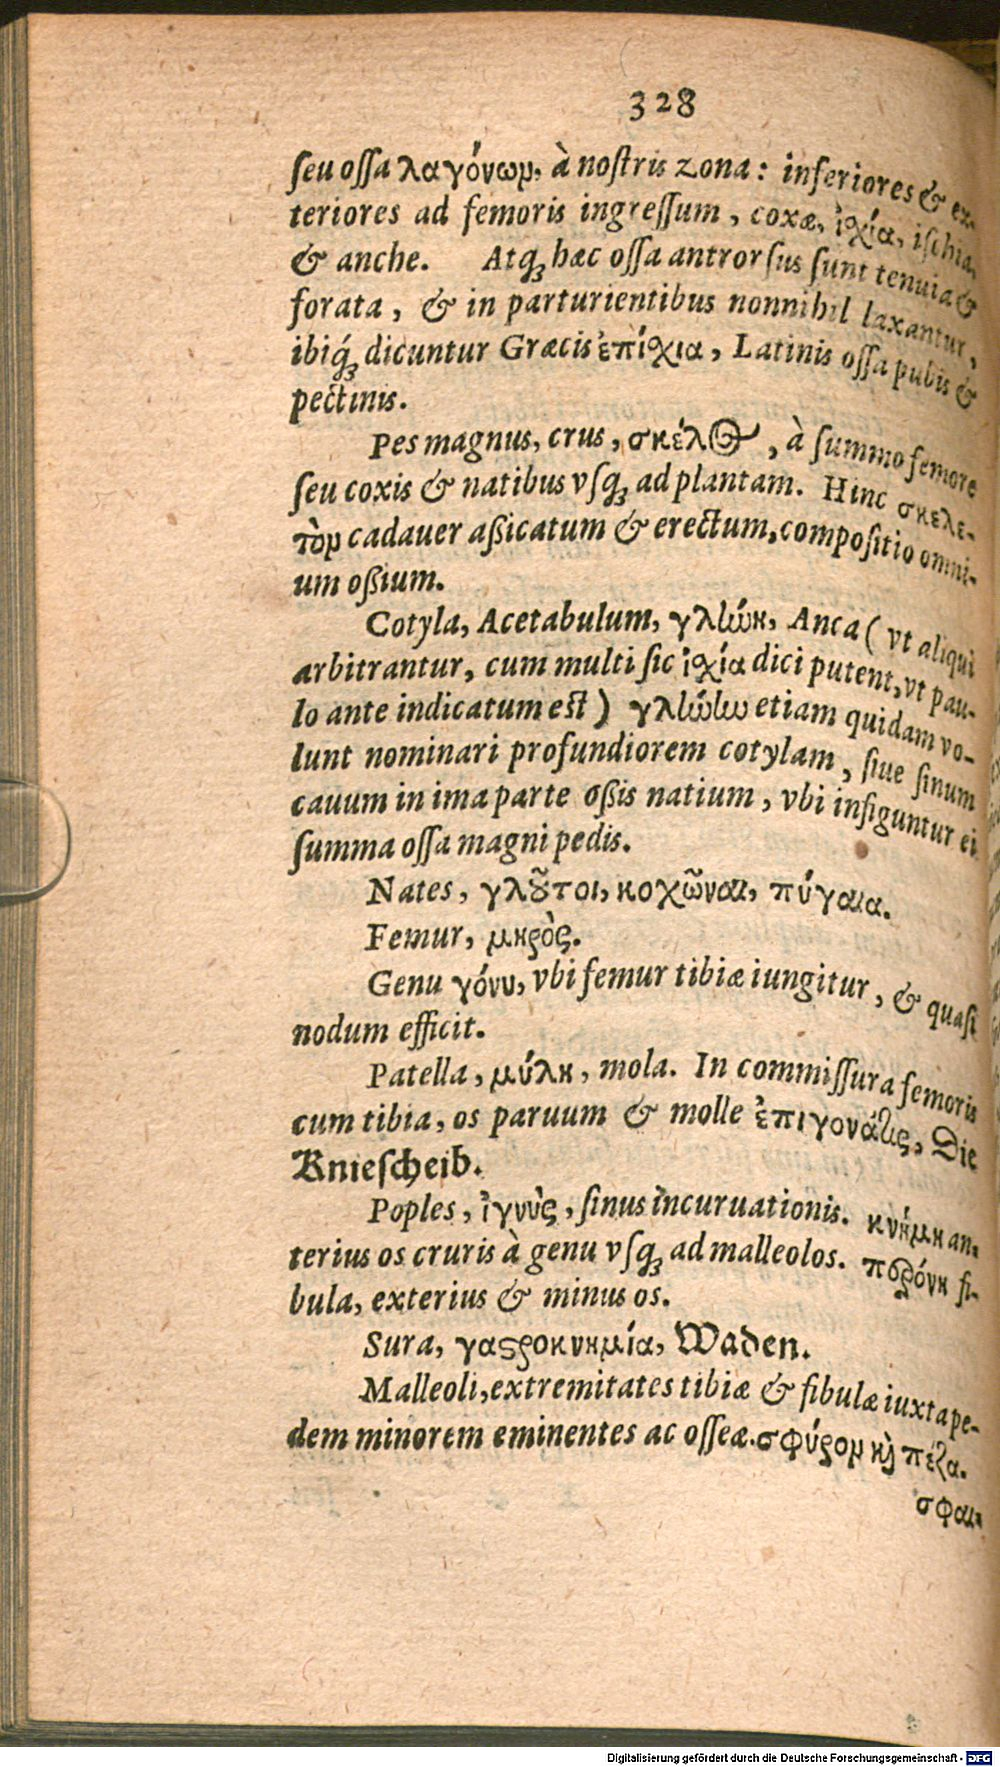 328
ſeu oſſa λαγόνων, à noſtris zona: inferiores & ex-
teriores ad femoris ingreſſum, coxæ, ἰχία, iſchia,
& anche. Atq́; hæc oſſa antrorſus ſunt tenuia &
forata, & in parturientibus nonnihil laxantur,
ibiq́; dicuntur Græcis ἐπίχια, Latinis oſſa pubis &
pectinis.
Pes magnus, crus, σκέλος, à ſummo femore
ſeu coxis & natibus vſq; ad plantam. Hinc σκελε-
τὸν cadauer aßicatum & erectum, compoſitio omni-
um oßium.
Cotyla, Acetabulum, γλώη, Anca (vt aliqui
arbitrantur, cum multi ſic ἰχία dici putent, vt pau-
lo ante indicatum eſt) etiam quidam vo-
lunt nominari profundiorem cotylam, ſiue ſinum
cauum in ima parte oßis natium, vbi infiguntur ei
ſumma oſſa magni pedis.
Nates, γλοῦτοι, κοχῶναι, πύγαια.
Femur, μηρὸς.
Genu γόνυ, vbi femur tibiæ iungitur, & quaſi
nodum efficit.
Patella, μύλη, mola. In commiſſura femoris
cum tibia, os paruum & molle ἐπιγονάτις, Die
Knieſcheib.
Poples, ἰγνυὺς, ſinus incuruationis. κνήμη an-
terius os cruris à genu vſq; ad malleolos. περόνη fi-
bula, exterius & minus os.
Sura, γαστροκνημία, Waden.
Malleoli, extremitates tibiæ & fibulæ iuxta pe-
dem minorem eminentes ac oſſeæ. σφύρον καὶ πέζα.
σφαι-
Digitalisierung gefördert durch die Deutsche Forschungsgemeinschaft - DFG